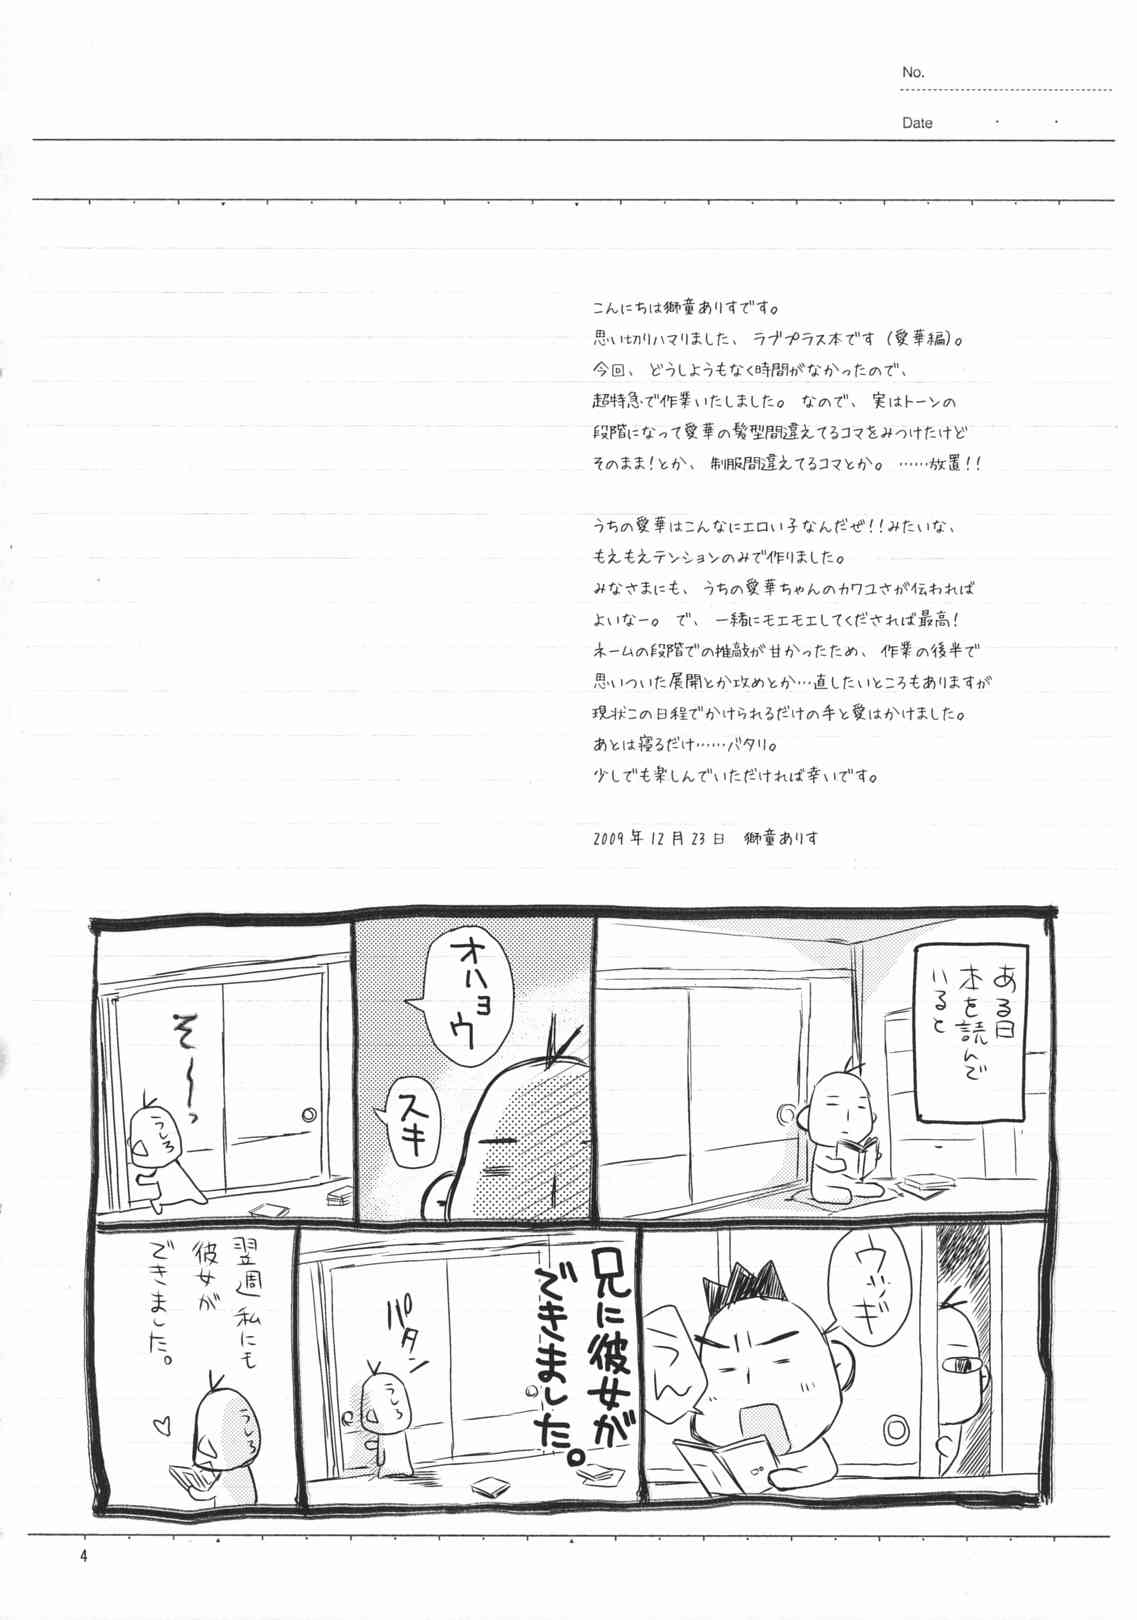 No.
Date
こんにちは獅童ありすです。
思い切りハマりました、ラブプラス本です（愛華編）。
今回、どうしようもなく時間がなかったので、
超特急で作業いたしました。なので、実はトーンの
段階になって愛華の髪型間違えてるコマをみつけたけど
そのまま！とか、制服間違えてるコマとか。……放置！！
うちの愛華はこんなにエロい子なんだぜ！！みたいな、
もえもえテンションのみで作りました。
みなさまにも、うちの愛華ちゃんのカワユさが伝われば
よいなー。で、一緒にモエモエしてくだされば最高！
ネームの段階での推敲が甘かったため、作業の後半で
思いついた展開とか攻めとか…直したいところもありますが
現状この日程でかけられるだけの手と愛はかけました。
あとは寝るだけ……バタリ。
少しでも楽しんでいただければ幸いです。
2009年12月23日　獅童ありす
ある日
本を読んで
いると
オハヨウ
スキ
そ～っ
うしろ
ウッギ
うん
兄に彼女が
できました。
パタン
うしろ
翌週私にも
彼女が
できました。
うしろ
4